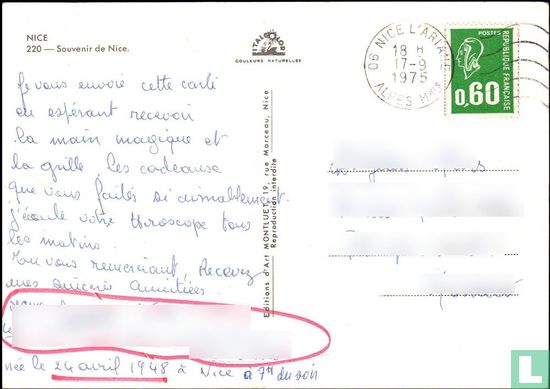 NICE
220 — Souvenir de Nice.
ITALCOLOR
COULEURS NATURELLES
06 NICE L'ARIANE
18 H
17-9
1975
ALPES Mmes
POSTES
REPUBLIQUE FRANÇAISE
0,60
Je vous envoie cette carte
en espérant recevoir
la main magique et
la grille, les cadeaux
que vous faites si aimablement.
j'écoute votre Horoscope tous
les matins.
vous remerciant, Recevez
mes sincères amitiées
née le 24 avril 1948 à Nice à 7H du soir
Editions d'Art MONTLUET, 19, rue Marceau, Nice
Reproduction interdite
catawiki